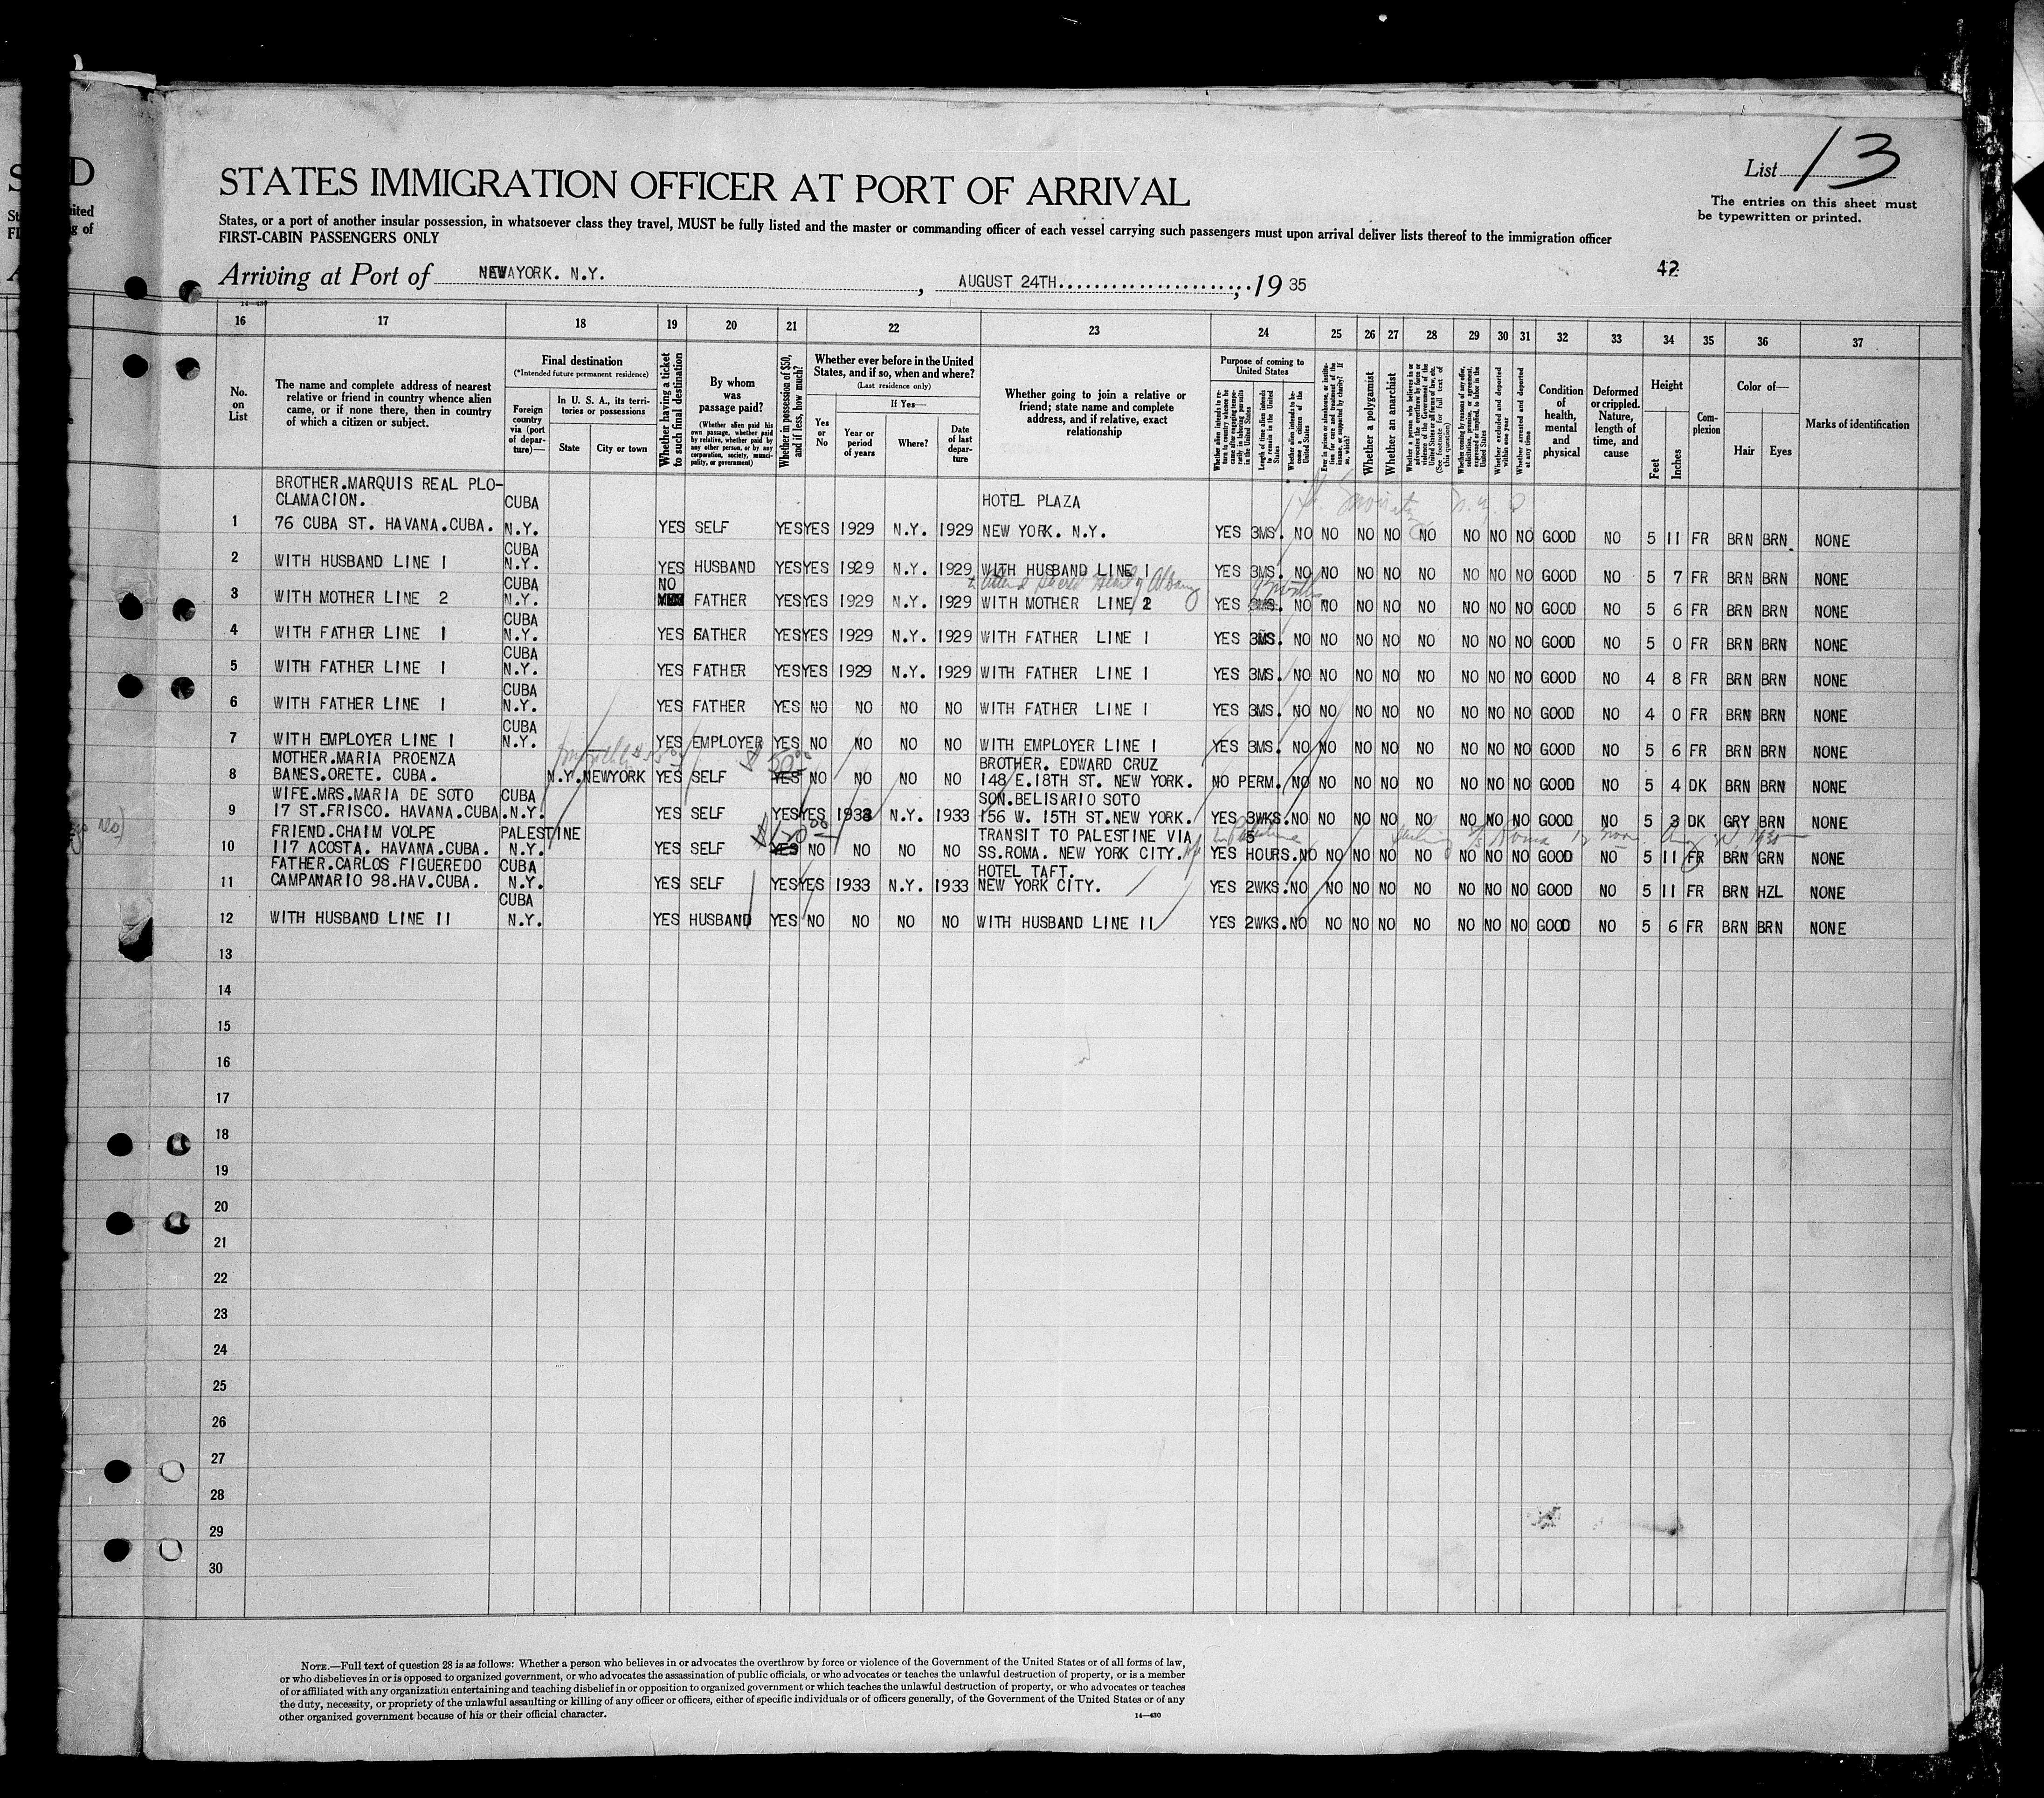 S D
STATES IMMIGRATION OFFICER AT PORT OF ARRIVAL
List 13
The entries on this sheet must
be typewritten or printed.
States, or a port of another insular possession, in whatsoever class they travel, MUST be fully listed and the master or commanding officer of each vessel carrying such passengers must upon arrival deliver lists thereof to the immigration officer
FIRST-CABIN PASSENGERS ONLY
Arriving at Port of NEW YORK. N.Y. , AUGUST 24TH , 19 35
42
14—430
16 17 18 19 20 21 22 23 24 25 26 27 28 29 30 31 32 33 34 35 36 37
No. on List
The name and complete address of nearest relative or friend in country whence alien came, or if none there, then in country of which a citizen or subject.
Final destination
(*Intended future permanent residence)
Foreign country via (port of departure)—
In U. S. A., its territories or possessions
State
City or town
Whether having a ticket to such final destination
By whom was passage paid?
(Whether alien paid his own passage, whether paid by relative, whether paid by any other person, or by any corporation, society, municipality, or government)
Whether in possession of $50, and if less, how much?
Whether ever before in the United States, and if so, when and where?
(Last residence only)
Yes or No
If Yes—
Year or period of years
Where?
Date of last departure
Whether going to join a relative or friend; state name and complete address, and if relative, exact relationship
Purpose of coming to United States
Whether alien intends to return to country whence he came after engaging temporarily in laboring pursuits in the United States
Length of time alien intends to remain in the United States
Whether alien intends to become a citizen of the United States
Ever in prison or almshouse, or institution for care and treatment of the insane, or supported by charity? If so, which?
Whether a polygamist
Whether an anarchist
Whether a person who believes in or advocates the overthrow by force or violence of the Government of the United States or all forms of law, etc. (See footnote for full text of this question)
Whether coming by reason of any offer, solicitation, promise, or agreement, expressed or implied, to labor in the United States
Whether excluded and deported within one year
Whether arrested and deported at any time
Condition of health, mental and physical
Deformed or crippled. Nature, length of time, and cause
Height
Feet
Inches
Complexion
Color of—
Hair
Eyes
Marks of identification
BROTHER.MARQUIS REAL PLO-
CLAMACION. CUBA HOTEL PLAZA
1 76 CUBA ST. HAVANA.CUBA. N.Y. YES SELF YES YES 1929 N.Y. 1929 NEW YORK. N.Y. YES 3MS. NO NO NO NO NO NO NO NO GOOD NO 5 11 FR BRN BRN NONE
CUBA
2 WITH HUSBAND LINE 1 N.Y. YES HUSBAND YES YES 1929 N.Y. 1929 WITH HUSBAND LINE 1 YES 3MS. NO NO NO NO NO NO NO NO GOOD NO 5 7 FR BRN BRN NONE
CUBA NO to attend Sacred Heart Albany
3 WITH MOTHER LINE 2 N.Y. YES FATHER YES YES 1929 N.Y. 1929 WITH MOTHER LINE 2 YES 3MS. NO NO NO NO NO NO NO NO GOOD NO 5 6 FR BRN BRN NONE
CUBA
4 WITH FATHER LINE 1 N.Y. YES FATHER YES YES 1929 N.Y. 1929 WITH FATHER LINE 1 YES 3MS. NO NO NO NO NO NO NO NO GOOD NO 5 0 FR BRN BRN NONE
CUBA
5 WITH FATHER LINE 1 N.Y. YES FATHER YES YES 1929 N.Y. 1929 WITH FATHER LINE 1 YES 3MS. NO NO NO NO NO NO NO NO GOOD NO 4 8 FR BRN BRN NONE
CUBA
6 WITH FATHER LINE 1 N.Y. YES FATHER YES NO NO NO NO WITH FATHER LINE 1 YES 3MS. NO NO NO NO NO NO NO NO GOOD NO 4 0 FR BRN BRN NONE
CUBA
7 WITH EMPLOYER LINE 1 N.Y. YES EMPLOYER YES NO NO NO NO WITH EMPLOYER LINE 1 YES 3MS. NO NO NO NO NO NO NO NO GOOD NO 5 6 FR BRN BRN NONE
MOTHER.MARIA PROENZA $ 50 00 BROTHER. EDWARD CRUZ
8 BANES.ORETE. CUBA. N.Y. NEWYORK YES SELF YES NO NO NO NO 148 E.18TH ST. NEW YORK. NO PERM. NO NO NO NO NO NO NO NO GOOD NO 5 4 DK BRN BRN NONE
WIFE.MRS.MARIA DE SOTO CUBA SON.BELISARIO SOTO
9 17 ST.FRISCO. HAVANA.CUBA. N.Y. YES SELF YES YES 1933 N.Y. 1933 156 W. 15TH ST.NEW YORK. YES 3WKS. NO NO NO NO NO NO NO NO GOOD NO 5 3 DK GRY BRN NONE
FRIEND.CHAIM VOLPE PALESTINE $ 150 00 TRANSIT TO PALESTINE VIA 5 to Palestine Sailing S/S Roma 12 noon Aug 1935
10 117 ACOSTA. HAVANA.CUBA. N.Y. YES SELF YES NO NO NO NO SS.ROMA. NEW YORK CITY. YES HOURS. NO NO NO NO NO NO NO NO GOOD NO 5 11 FR BRN GRN NONE
FATHER.CARLOS FIGUEREDO CUBA HOTEL TAFT.
11 CAMPANARIO 98.HAV.CUBA. N.Y. YES SELF YES YES 1933 N.Y. 1933 NEW YORK CITY. YES 2WKS. NO NO NO NO NO NO NO NO GOOD NO 5 11 FR BRN HZL NONE
CUBA
12 WITH HUSBAND LINE 11 N.Y. YES HUSBAND YES NO NO NO NO WITH HUSBAND LINE 11 YES 2WKS. NO NO NO NO NO NO NO NO GOOD NO 5 6 FR BRN BRN NONE
13
14
15
16
17
18
19
20
21
22
23
24
25
26
27
28
29
30
NOTE.—Full text of question 28 is as follows: Whether a person who believes in or advocates the overthrow by force or violence of the Government of the United States or of all forms of law,
or who disbelieves in or is opposed to organized government, or who advocates the assassination of public officials, or who advocates or teaches the unlawful destruction of property, or is a member
of or affiliated with any organization entertaining and teaching disbelief in or opposition to organized government or which teaches the unlawful destruction of property, or who advocates or teaches
the duty, necessity, or propriety of the unlawful assaulting or killing of any officer or officers, either of specific individuals or of officers generally, of the Government of the United States or of any
other organized government because of his or their official character.
14—430